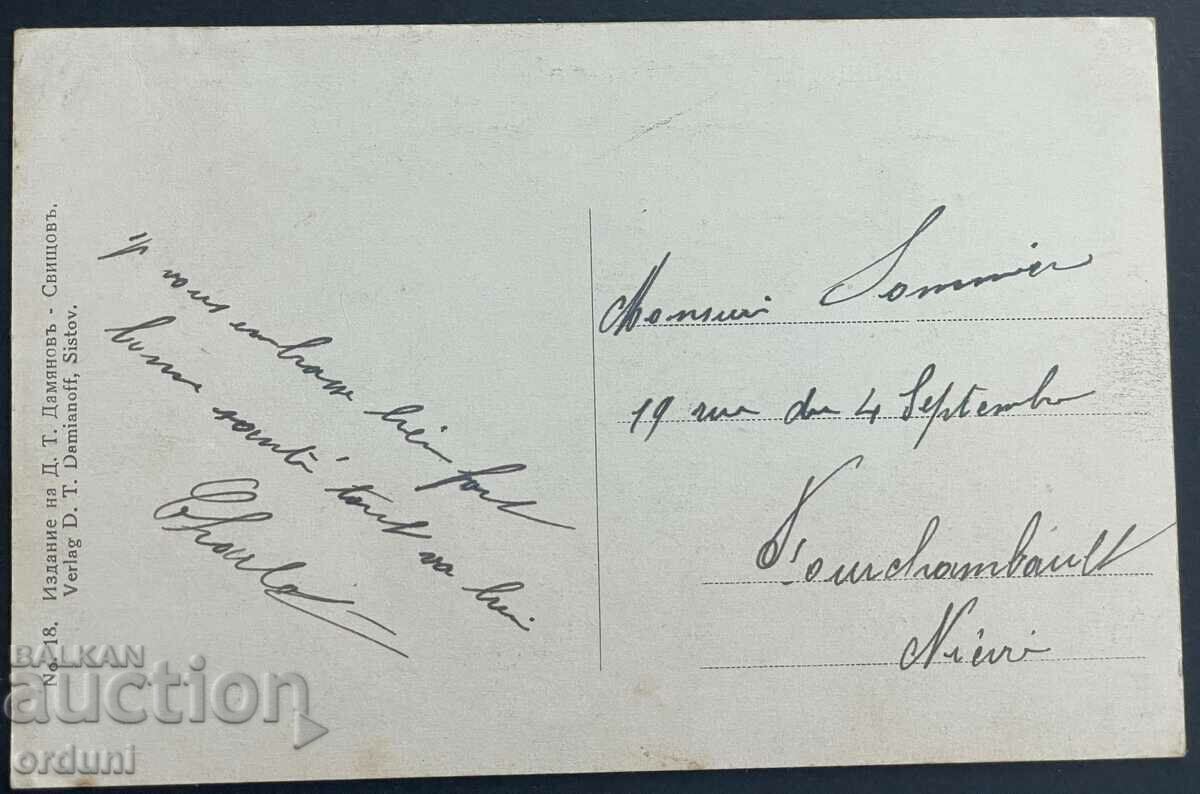 No. 18. Издание на Д. Т. Дамяновъ - Свищовъ.
Verlag D. T. Damianoff, Sistov.
vous embrasse bien fort
bonne santé tout va bien
Charles
Monsieur Sommier
19 rue du 4 Septembre
Fourchambault
Nièvre
BALKAN
auction
orduni